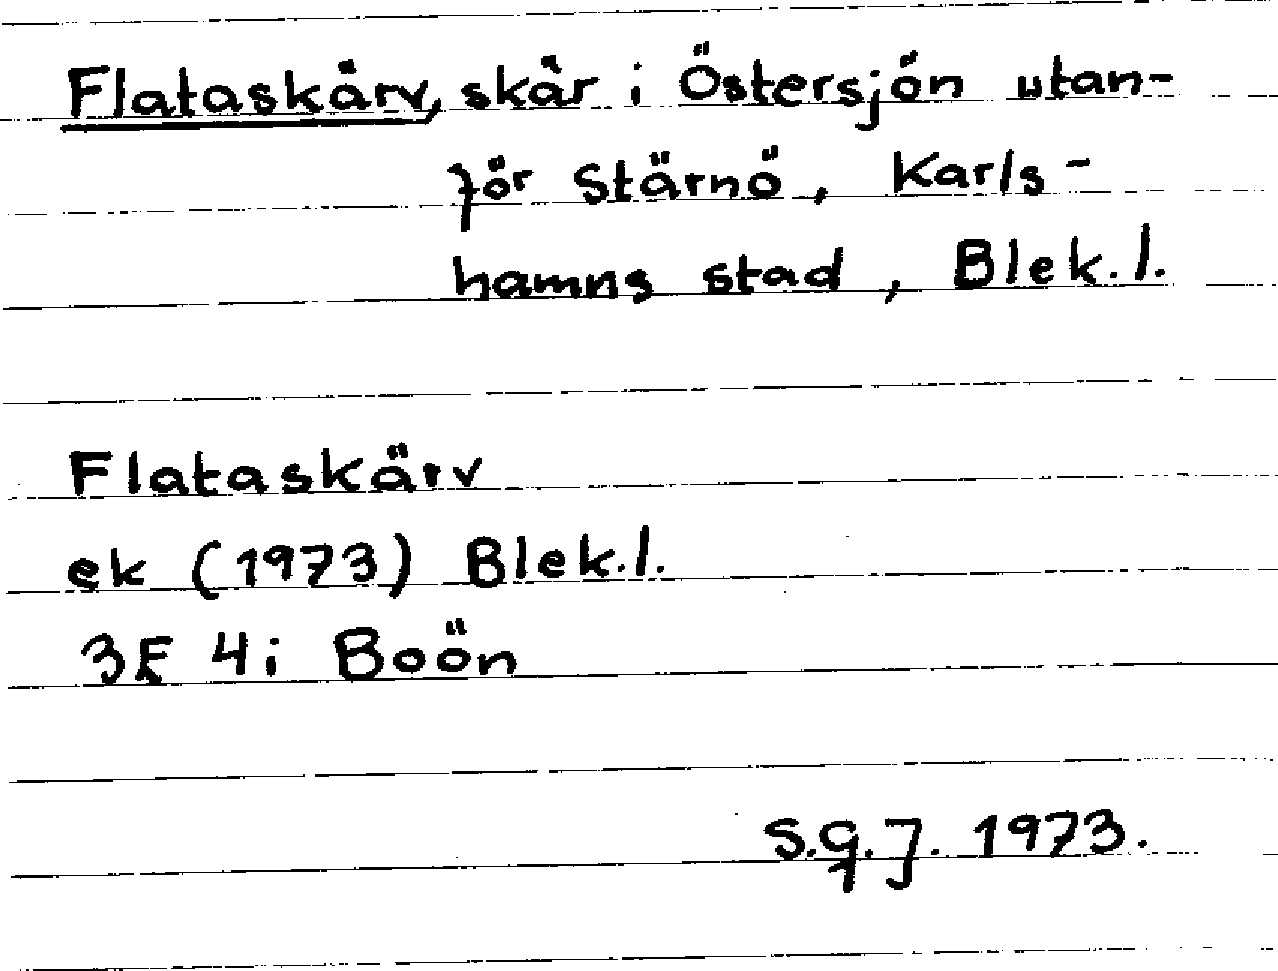 Flataskärv, skär i Östersjön utan-
för Stärnö, Karls-
hamns stad, Blek.l.
Flataskärv
ek (1973) Blek.l.
3E 4i Boön
S.G.J. 1973.